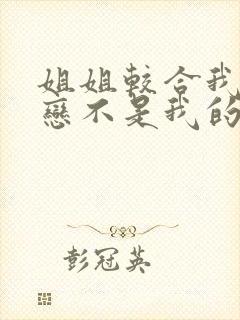 姐姐較合我
戀不是我的
彭冠英